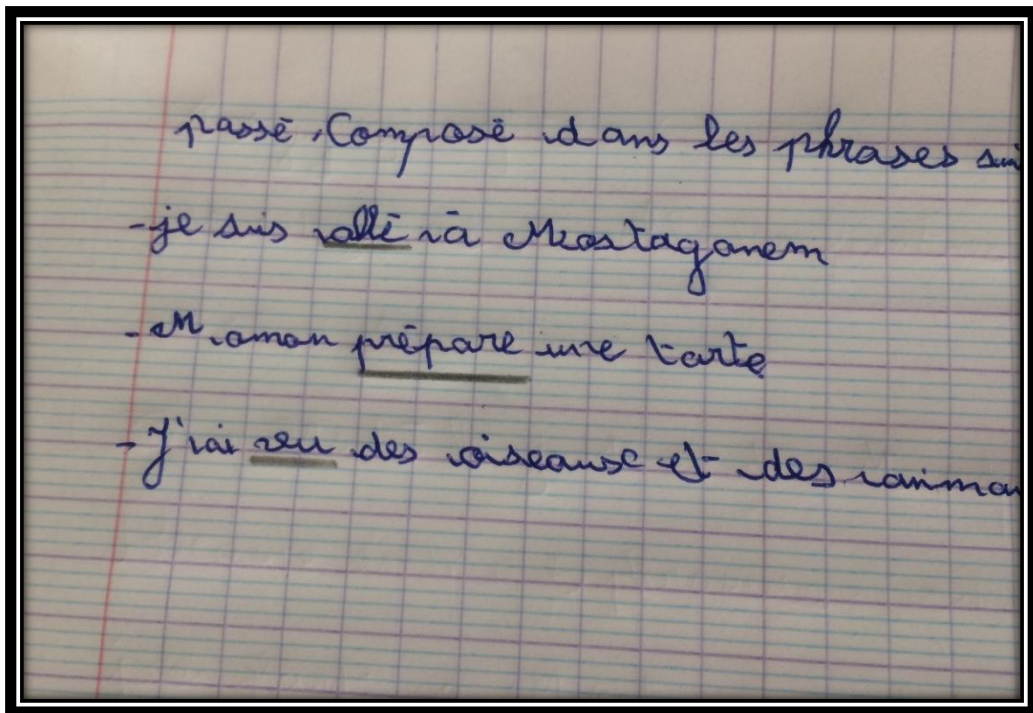 passé Composé dans les phrases
-je suis allé à Mostaganem
-Maman prépare une tarte
-J'ai vu des oiseaux et des